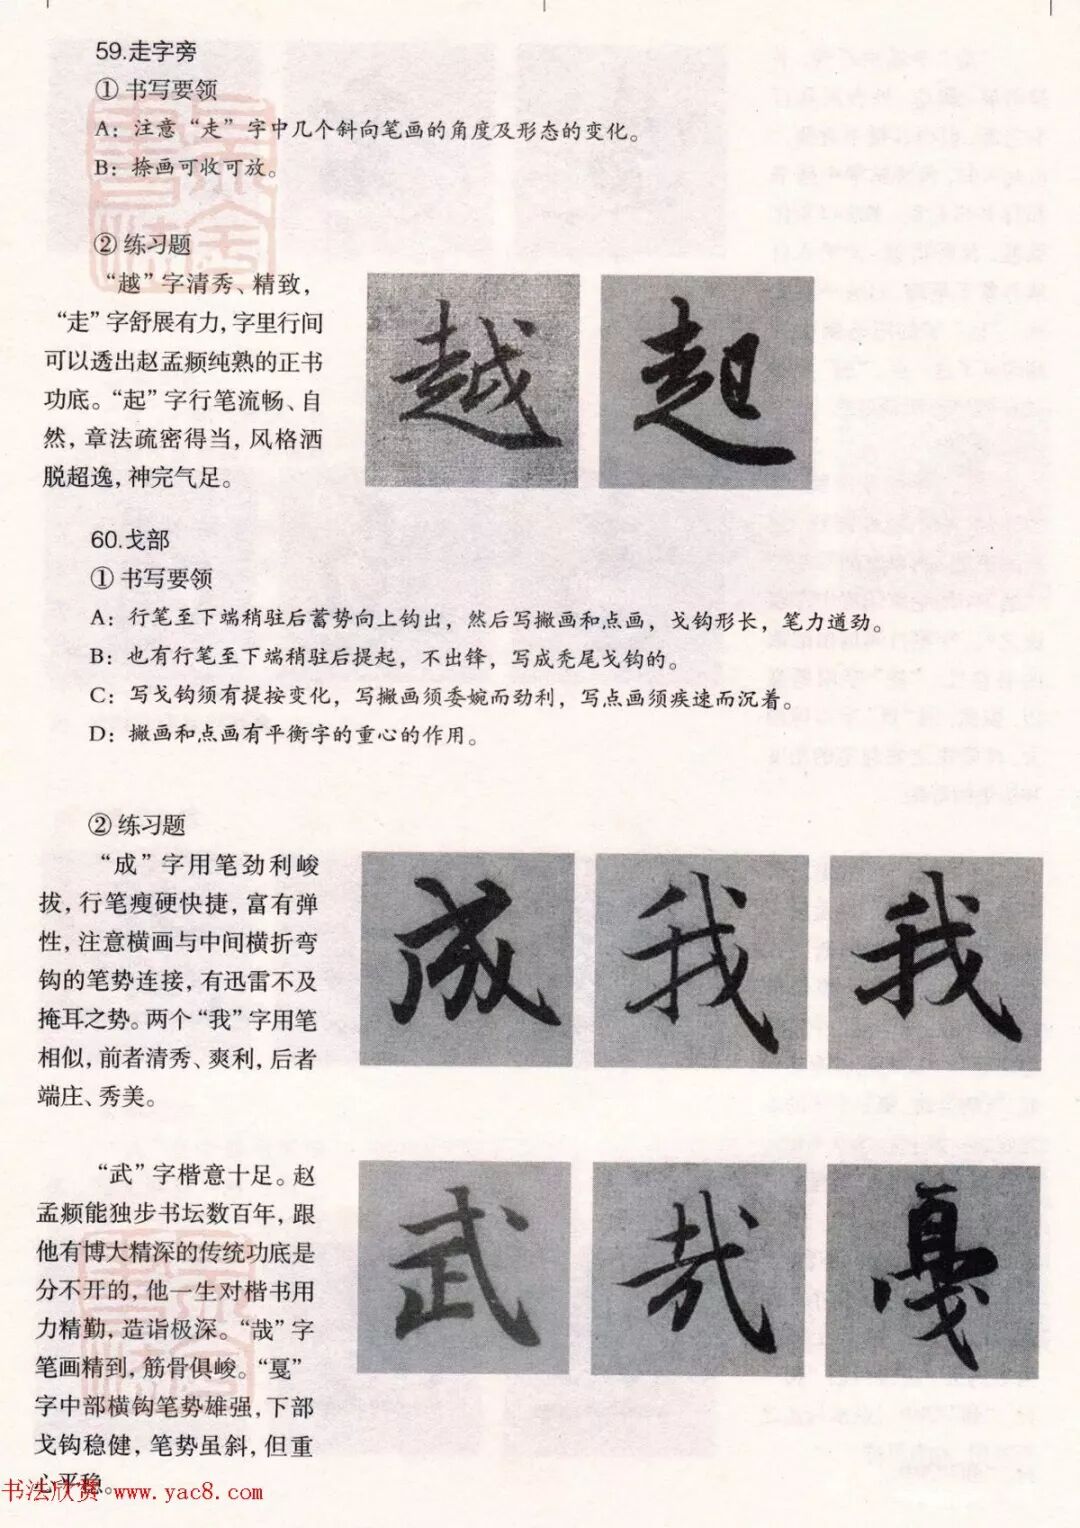 59.走字旁
① 书写要领
A：注意“走”字中几个斜向笔画的角度及形态的变化。
B：捺画可收可放。
② 练习题
“越”字清秀、精致，
“走”字舒展有力，字里行间
可以透出赵孟頫纯熟的正书
功底。“起”字行笔流畅、自
然，章法疏密得当，风格洒
脱超逸，神完气足。
越 起
60.戈部
① 书写要领
A：行笔至下端稍驻后蓄势向上钩出，然后写撇画和点画，戈钩形长，笔力遒劲。
B：也有行笔至下端稍驻后提起，不出锋，写成秃尾戈钩的。
C：写戈钩须有提按变化，写撇画须委婉而劲利，写点画须疾速而沉着。
D：撇画和点画有平衡字的重心的作用。
② 练习题
“成”字用笔劲利峻
拔，行笔瘦硬快捷，富有弹
性，注意横画与中间横折弯
钩的笔势连接，有迅雷不及
掩耳之势。两个“我”字用笔
相似，前者清秀、爽利，后者
端庄、秀美。
成 我 我
“武”字楷意十足。赵
孟頫能独步书坛数百年，跟
他有博大精深的传统功底是
分不开的，他一生对楷书用
力精勤，造诣极深。“哉”字
笔画精到，筋骨俱峻。“戛”
字中部横钩笔势雄强，下部
戈钩稳健，笔势虽斜，但重
心平稳。
武 哉 戛
书法欣赏 www.yac8.com